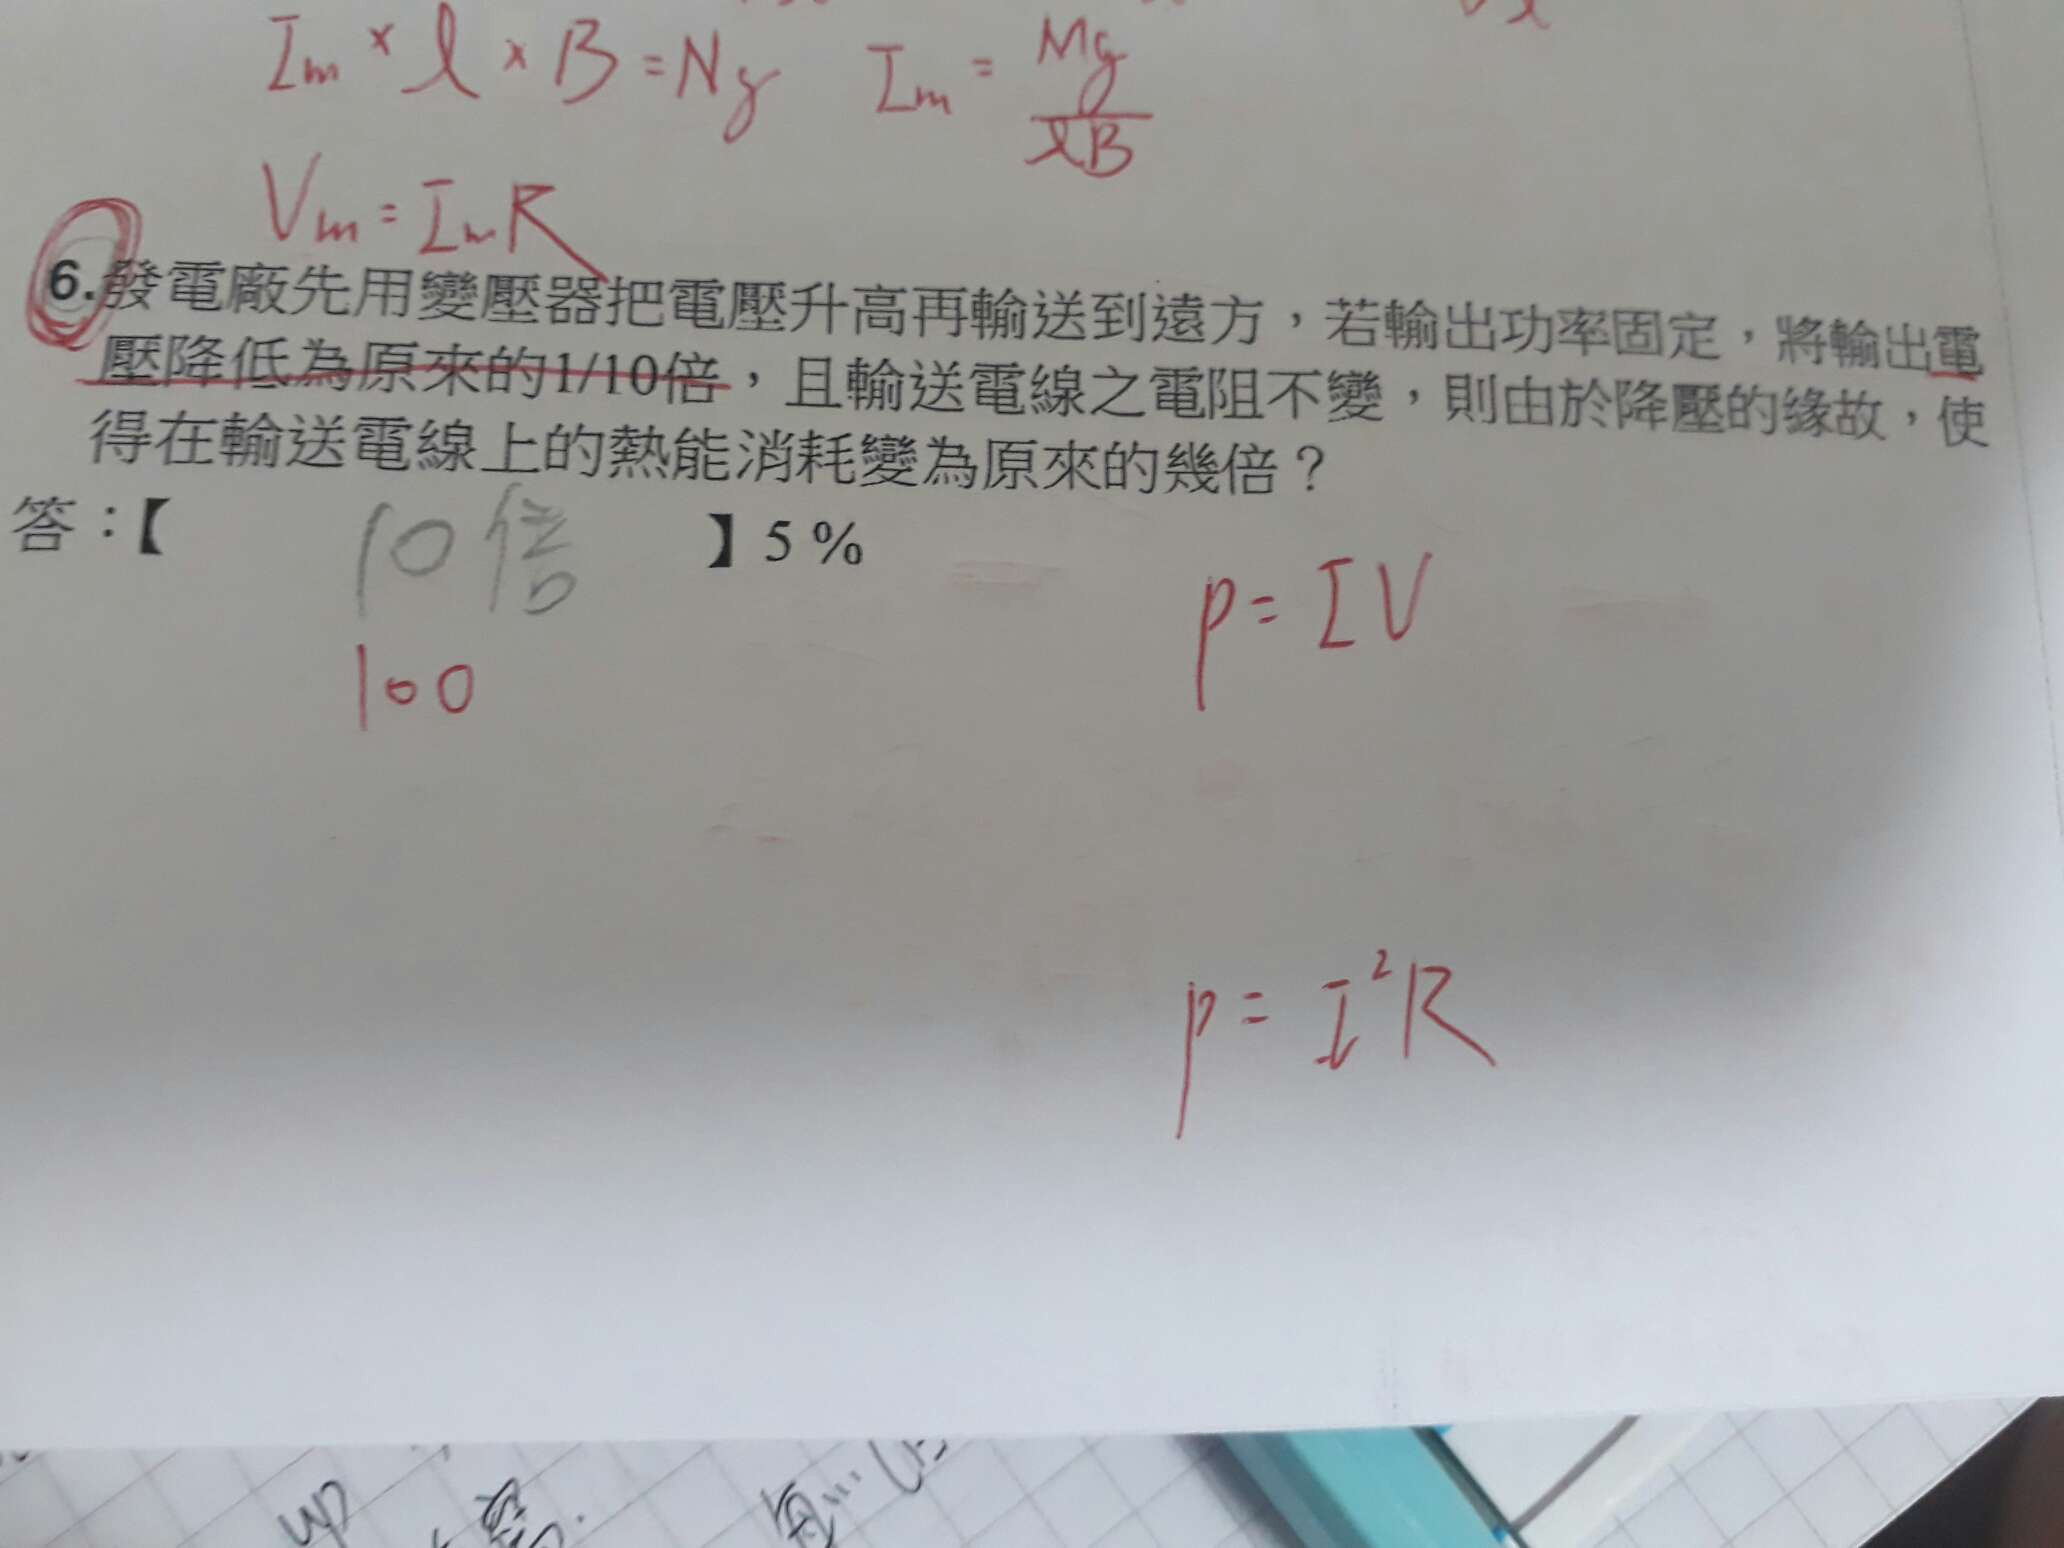 Im × l × B = Ng Im = Mg / lB
Vm = ImR
6.發電廠先用變壓器把電壓升高再輸送到遠方，若輸出功率固定，將輸出電
壓降低為原來的1/10倍，且輸送電線之電阻不變，則由於降壓的緣故，使
得在輸送電線上的熱能消耗變為原來的幾倍？
答：【 10倍 】5 %
100
P = IV
P = I²R